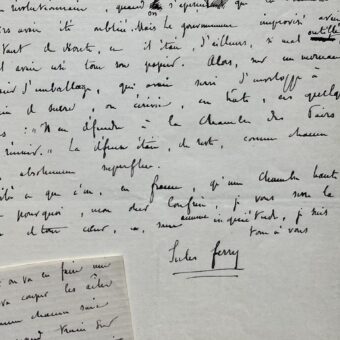 révolutionnaire, quand on s'apercevait que
avait été oublié. Mais le gouvernement improvisé avait
tant de décrets, et il était, d'ailleurs, si mal outillé
avait usé tout son papier. Alors, sur un morceau
d'emballage, qui avait servi d'enveloppe à
de sucre, on écrivit, en hâte, ces quelques
: "Il est défendu à la Chambre des Pairs
réunir." La défense était, du reste, comme chacun
absolument superflue.
ce que c'est, en France, qu'une Chambre haute
pourquoi, mon cher confrère, je vous la
de tout cœur, et sans aucune inquiétude, je suis
tout à vous
Jules Ferry
on va en faire une
va couper les ailes
comme chacun sait